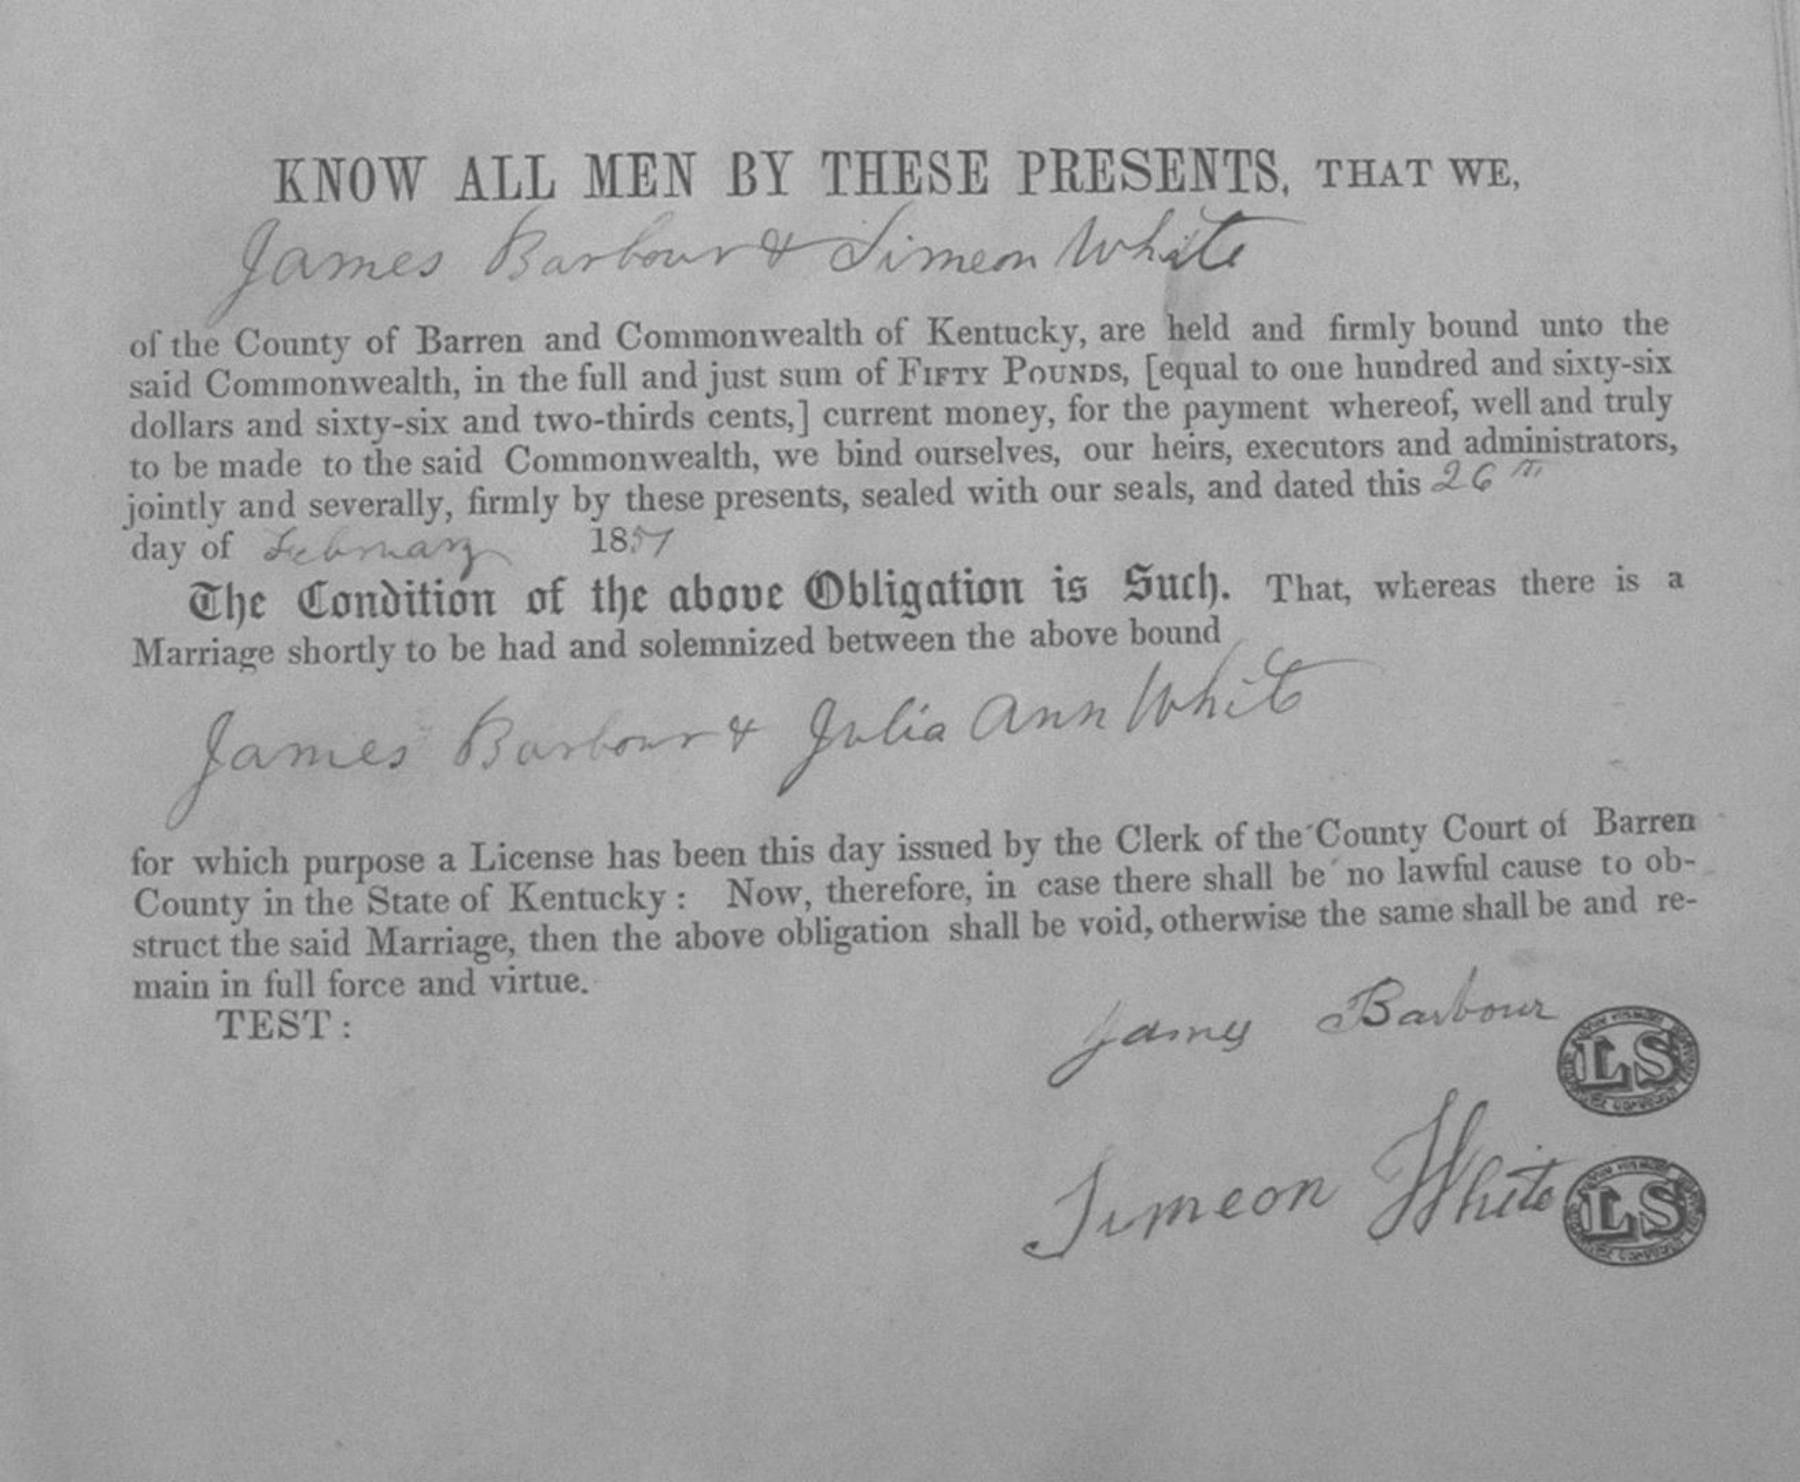 KNOW ALL MEN BY THESE PRESENTS, THAT WE,
James Barbour & Simeon White
of the County of Barren and Commonwealth of Kentucky, are held and firmly bound unto the
said Commonwealth, in the full and just sum of FIFTY POUNDS, [equal to one hundred and sixty-six
dollars and sixty-six and two-thirds cents,] current money, for the payment whereof, well and truly
to be made to the said Commonwealth, we bind ourselves, our heirs, executors and administrators,
jointly and severally, firmly by these presents, sealed with our seals, and dated this 26th
day of February 1857
The Condition of the above Obligation is Such. That, whereas there is a
Marriage shortly to be had and solemnized between the above bound
James Barbour & Julia Ann White
for which purpose a License has been this day issued by the Clerk of the County Court of Barren
County in the State of Kentucky: Now, therefore, in case there shall be no lawful cause to ob-
struct the said Marriage, then the above obligation shall be void, otherwise the same shall be and re-
main in full force and virtue.
TEST:
James Barbour LS
Simeon White LS